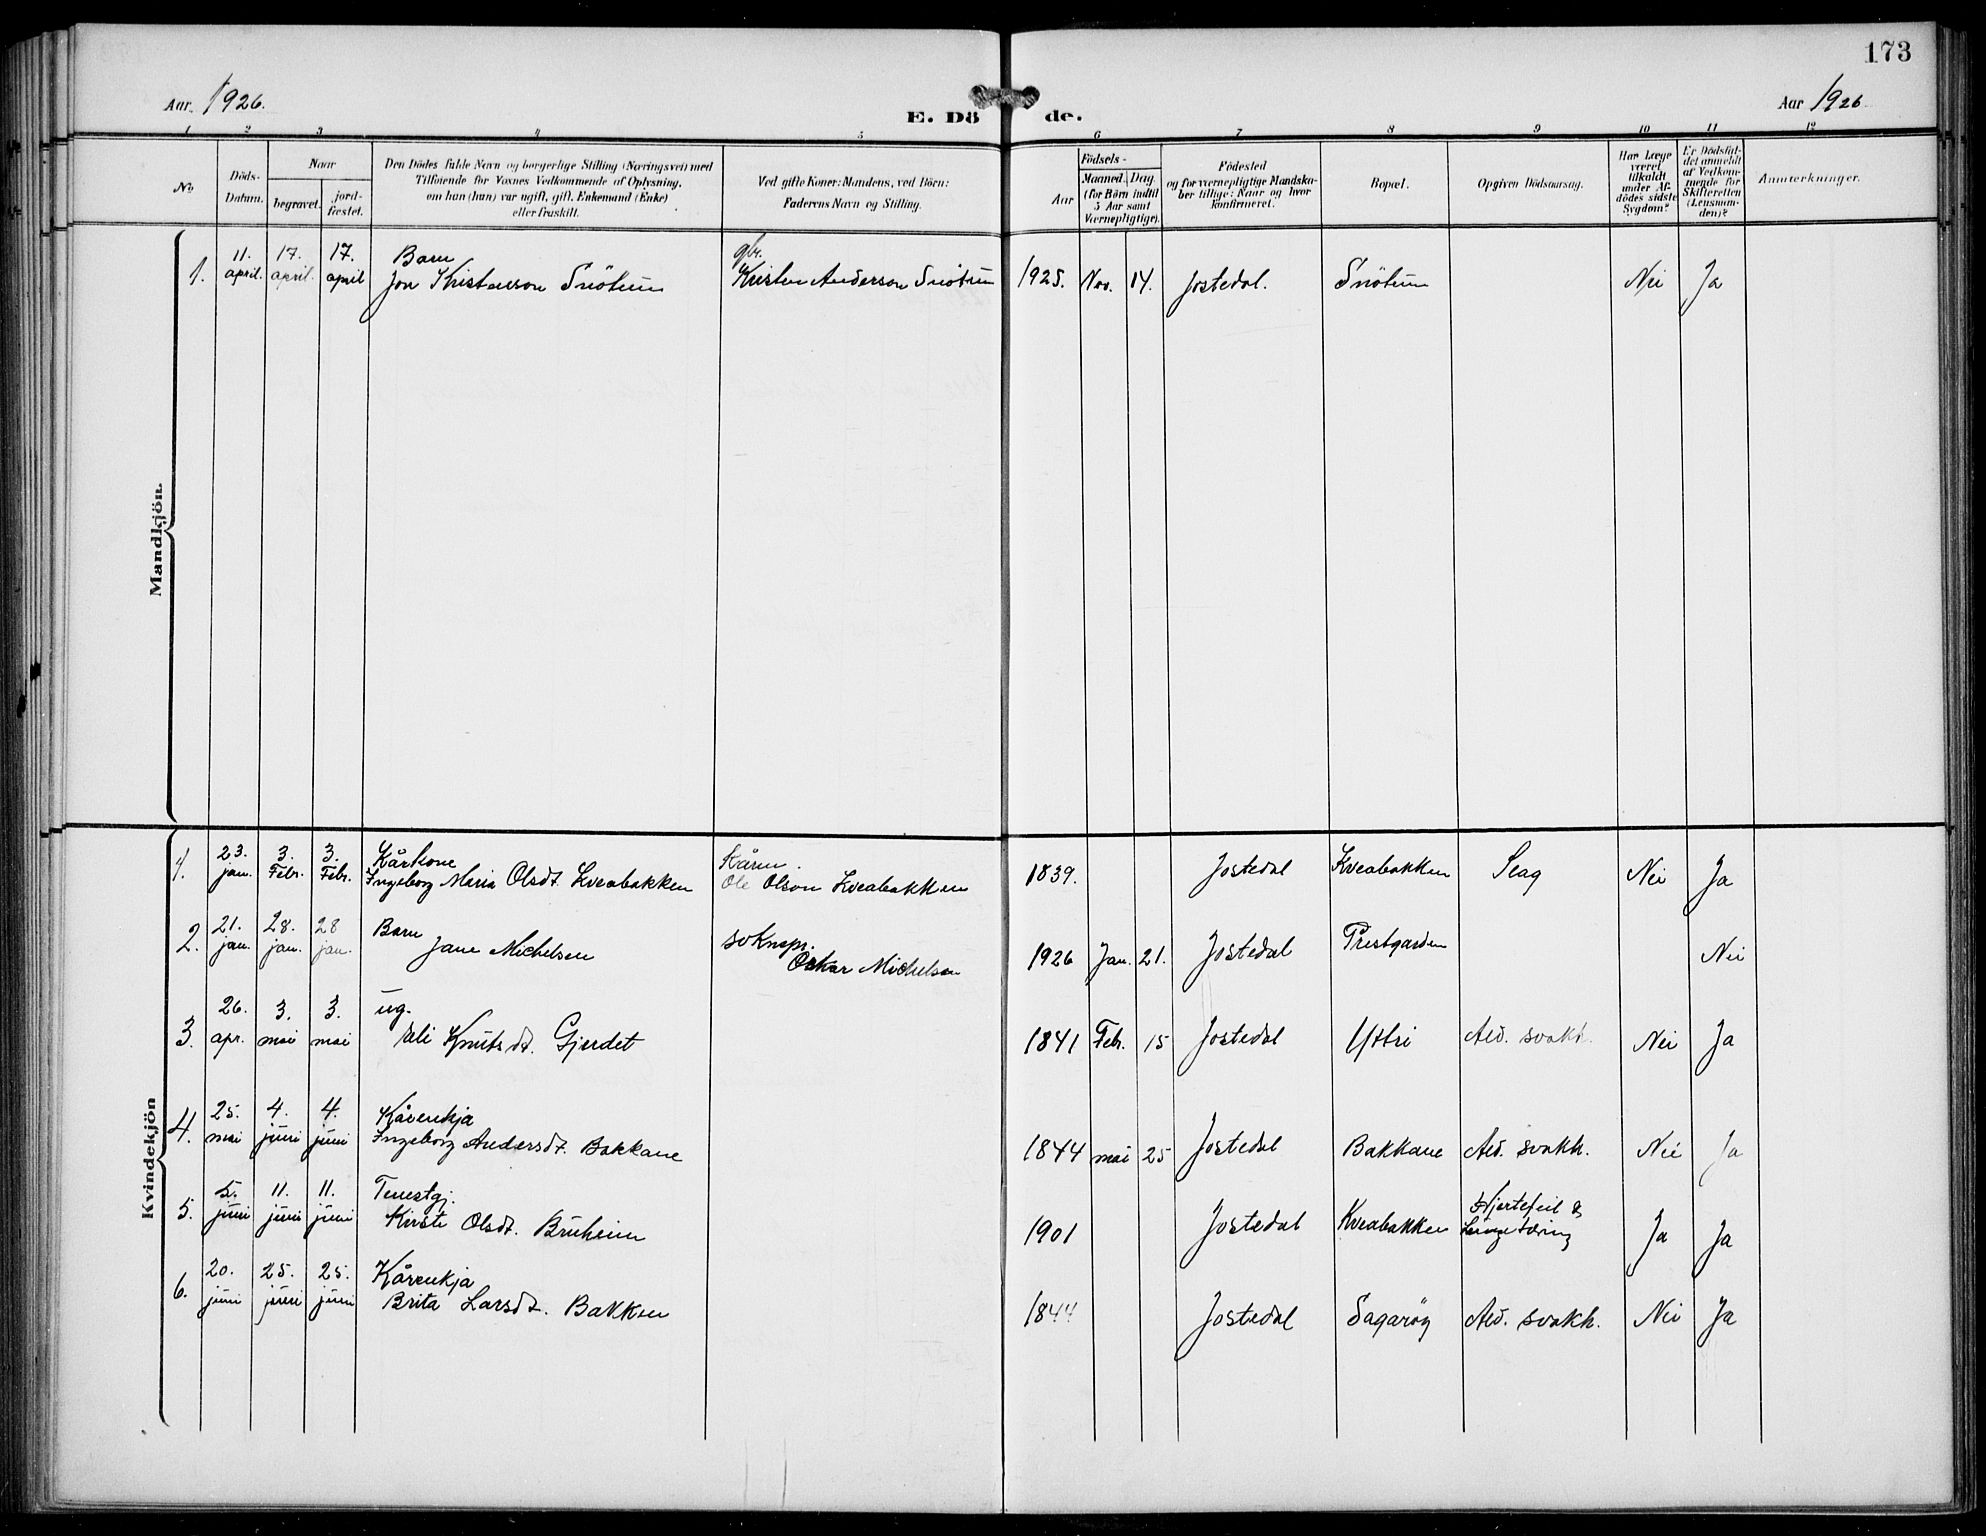 173
Aar 1926.
E. Döde.
Aar 1926
1 2 3 4 5 6 7 8 9 10 11 12
No
Döds-Datum.
Naar
begravet.
jord-fæstet.
Den Dödes fulde Navn og borgerlige Stilling (Næringsvei) med
Tilføiende for Voxnes Vedkommende af Oplysning,
om han (hun) var ugift, gift, Enkemand (Enke)
eller fraskilt.
Ved gifte Koner: Mandens, ved Börn:
Faderens Navn og Stilling.
Födsels-
Aar
Maaned. Dag.
(for Börn indtil
5 Aar samt
Værnepligtige).
Födested
og for værnepligtige Mandska-
ber tillige: Naar og hvor
konfirmeret.
Bopæl.
Opgiven Dödsaarsag.
Har Læge
været
tilkaldt
under Af-
dödes sidste
Sygdom?
Er Dödsfal-
det anmeldt
af Vedkom-
mende for
Skifteretten
(Lensman-
den)?
Anmerkninger.
Mandkjön.
1. 11. april. 17. april. 17. april Barn
Jon Kristenson Snötun gbr.
Kristen Anderson Snötun 1925. Nov. 14. Jostedal. Snötun Nei Ja
Kvindekjön
1. 23. jan. 3. Febr. 3. Febr. Kårkone
Ingeborg Maria Olsdt. Kveabakken Kårm.
Ole Olson Kveabakken 1839. Jostedal Kveabakken Slag Nei Ja
2. 21. jan. 28. jan. 28 jan. Barn
Jane Michelsen soknepr.
Oskar Michelsen 1926 Jan. 21. Jostedal Prestgarden Nei
3. 26. apr. 3. mai 3. mai ug.
Eli Knutsdt. Gjerdet 1841 Febr. 15 Jostedal Yttri Ald. svakh. Nei Ja
4. 25. mai 4. juni 4. juni Kårenkja
Ingeborg Andersdt. Bakkane 1844 mai 25 Jostedal Bakkane Ald. svakh. Nei Ja
5. 5. juni 11. juni 11. juni Tenestgj.
Kirsti Olsdt. Bruheim 1901 Jostedal Kveabakken Hjertefeil &
Lungetæring Ja Ja
6. 20. juni 25. juni 25. juni Kårenkja
Brita Larsdt. Bakken 1844 Jostedal Sagarøy Ald. svakh. Nei Ja